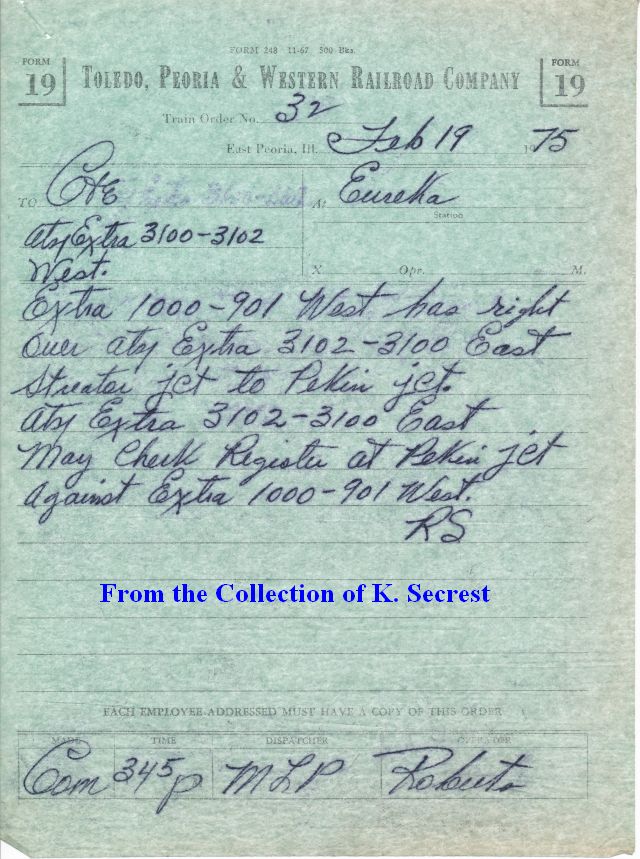 FORM 248 11-67 500 Bks.
FORM 19
TOLEDO, PEORIA & WESTERN RAILROAD COMPANY
FORM 19
Train Order No. 32
East Peoria, Ill. Feb 19 1975
TO C&E At Eureka
Station
Aty Extra 3100-3102
West.
X Opr. M.
Extra 1000-901 West has right
Over Aty Extra 3102-3100 East
Streator jct to Pekin jct.
Aty Extra 3102-3100 East
May Check Register at Pekin jct
Against Extra 1000-901 West.
RS
From the Collection of K. Secrest
EACH EMPLOYEE ADDRESSED MUST HAVE A COPY OF THIS ORDER
MADE TIME DISPATCHER OPERATOR
Com 345p MLP Roberts